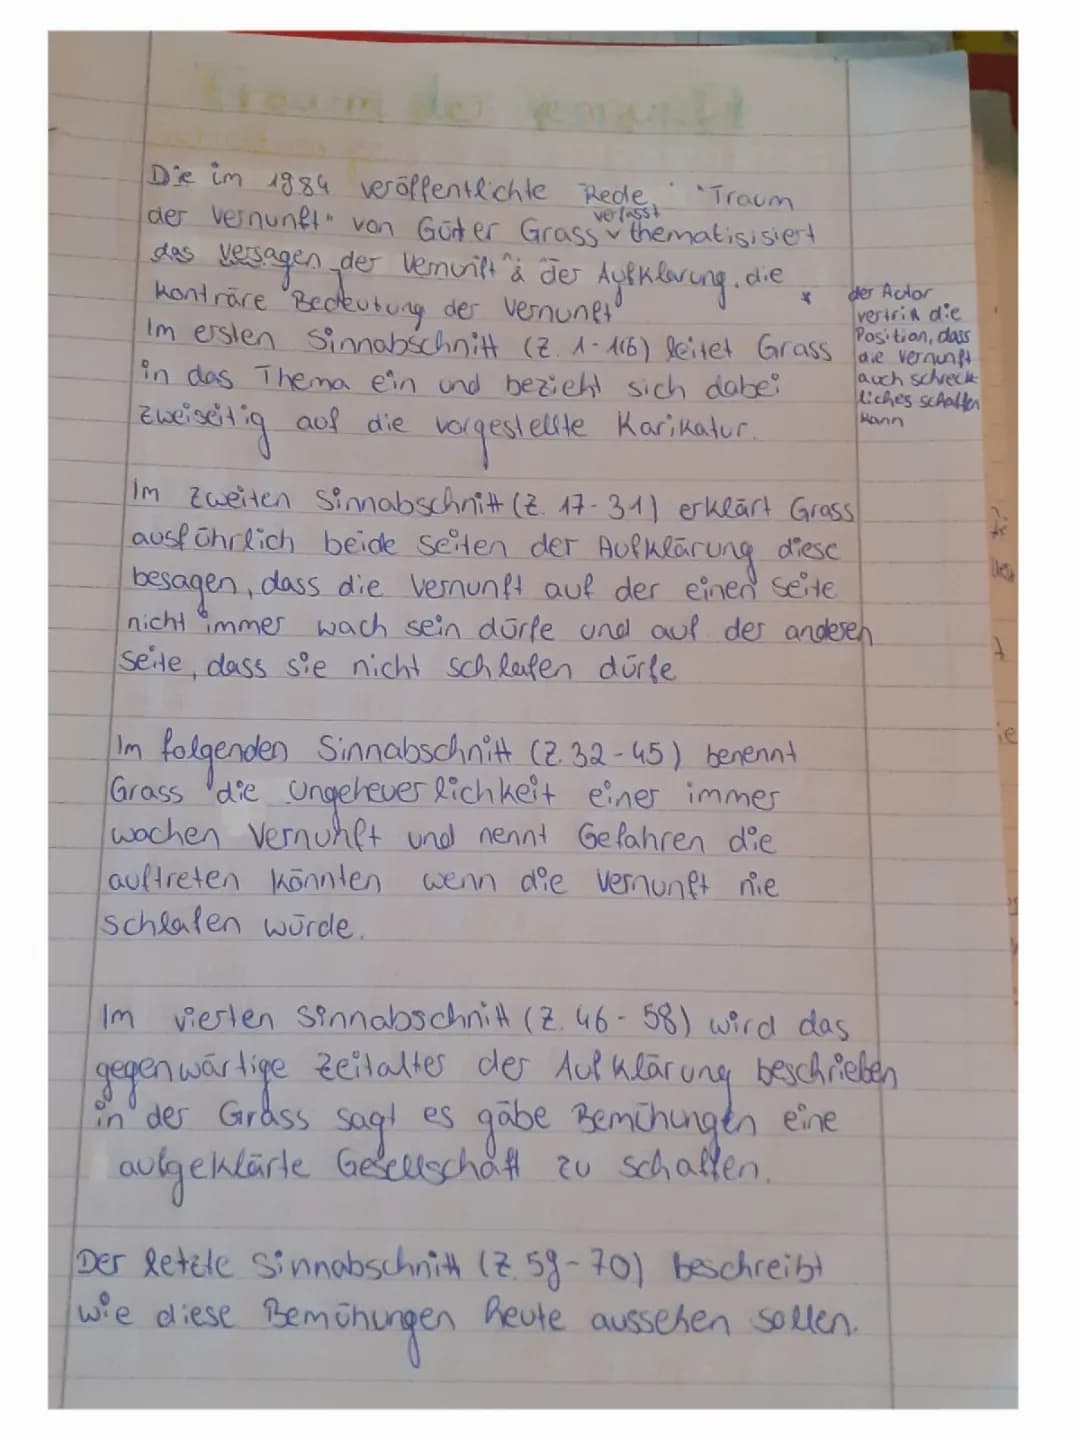 Die im 1984 veröffentlichte Rede, "Traum
der Vernunft" von Günter Grass verfasst thematisisiert
das Versagen der Vernunft & der Aufklärung, die
konträre Bedeutung der Vernunft *
Im ersten Sinnabschnitt (Z. 1-16) leitet Grass
in das Thema ein und bezieht sich dabei
zweiseitig auf die vorgestellte Karikatur.
der Autor
vertritt die
Position, dass
die Vernunft
auch schreck
liches schaffen
kann
Im zweiten Sinnabschnitt (Z. 17-31) erklärt Grass
ausführlich beide Seiten der Aufklärung diese
besagen, dass die Vernunft auf der einen Seite
nicht immer wach sein dürfe und auf der anderen
Seite, dass sie nicht schlafen dürfe
Im folgenden Sinnabschnitt (Z. 32-45) benennt
Grass die Ungeheuerlichkeit einer immer
wachen Vernunft und nennt Gefahren die
auftreten könnten wenn die Vernunft nie
schlafen würde.
Im vierten Sinnabschnitt (Z. 46-58) wird das
gegenwärtige Zeitalter der Aufklärung beschrieben
in der Grass sagt es gäbe Bemühungen eine
aufgeklärte Gesellschaft zu schaffen.
Der letzte Sinnabschnitt (Z. 59-70) beschreibt
wie diese Bemühungen heute aussehen sollen.